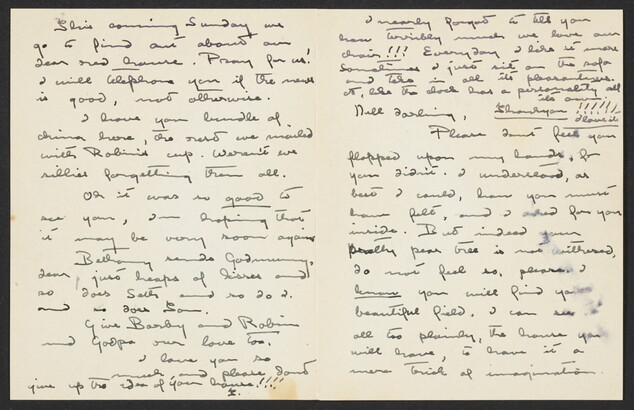 This coming Sunday we
go to find out about our
dear red house. Pray for us!
I will telephone you if the news
is good, not otherwise.
I have your bundle of
china here, the rest we mailed
with Robin's cup. Weren't we
sillies forgetting them all.
Oh it was so good to
see you, I'm hoping that
it may be very soon again
Bethany sends Godmummy,
dear, just heaps of kisses and
so does Seth and so do I.
and so does Sam.
Give Barby and Robin
and Godpa our love too.
I love you so
much and please don't
give up the idea of your house!!!!
I nearly forgot to tell you
how terribly much we love our
chair!!! Everyday I like it more
Sometimes I just sit on the sofa
and take in all its pleasantness.
It, like the clock has a personality all
its own.
Nell darling, Thankyou !!!!!!
I love it
Please dont feel you
flopped upon my hands, for
you didn't. I understood, as
best I could, how you must
have felt, and I ached for you
inside. But indeed your
pear tree is not withered,
do not feel so, please. I
know you will find your
beautiful field. I can see
all too plainly, the house you
will have, to have it a
mere trick of imagination.